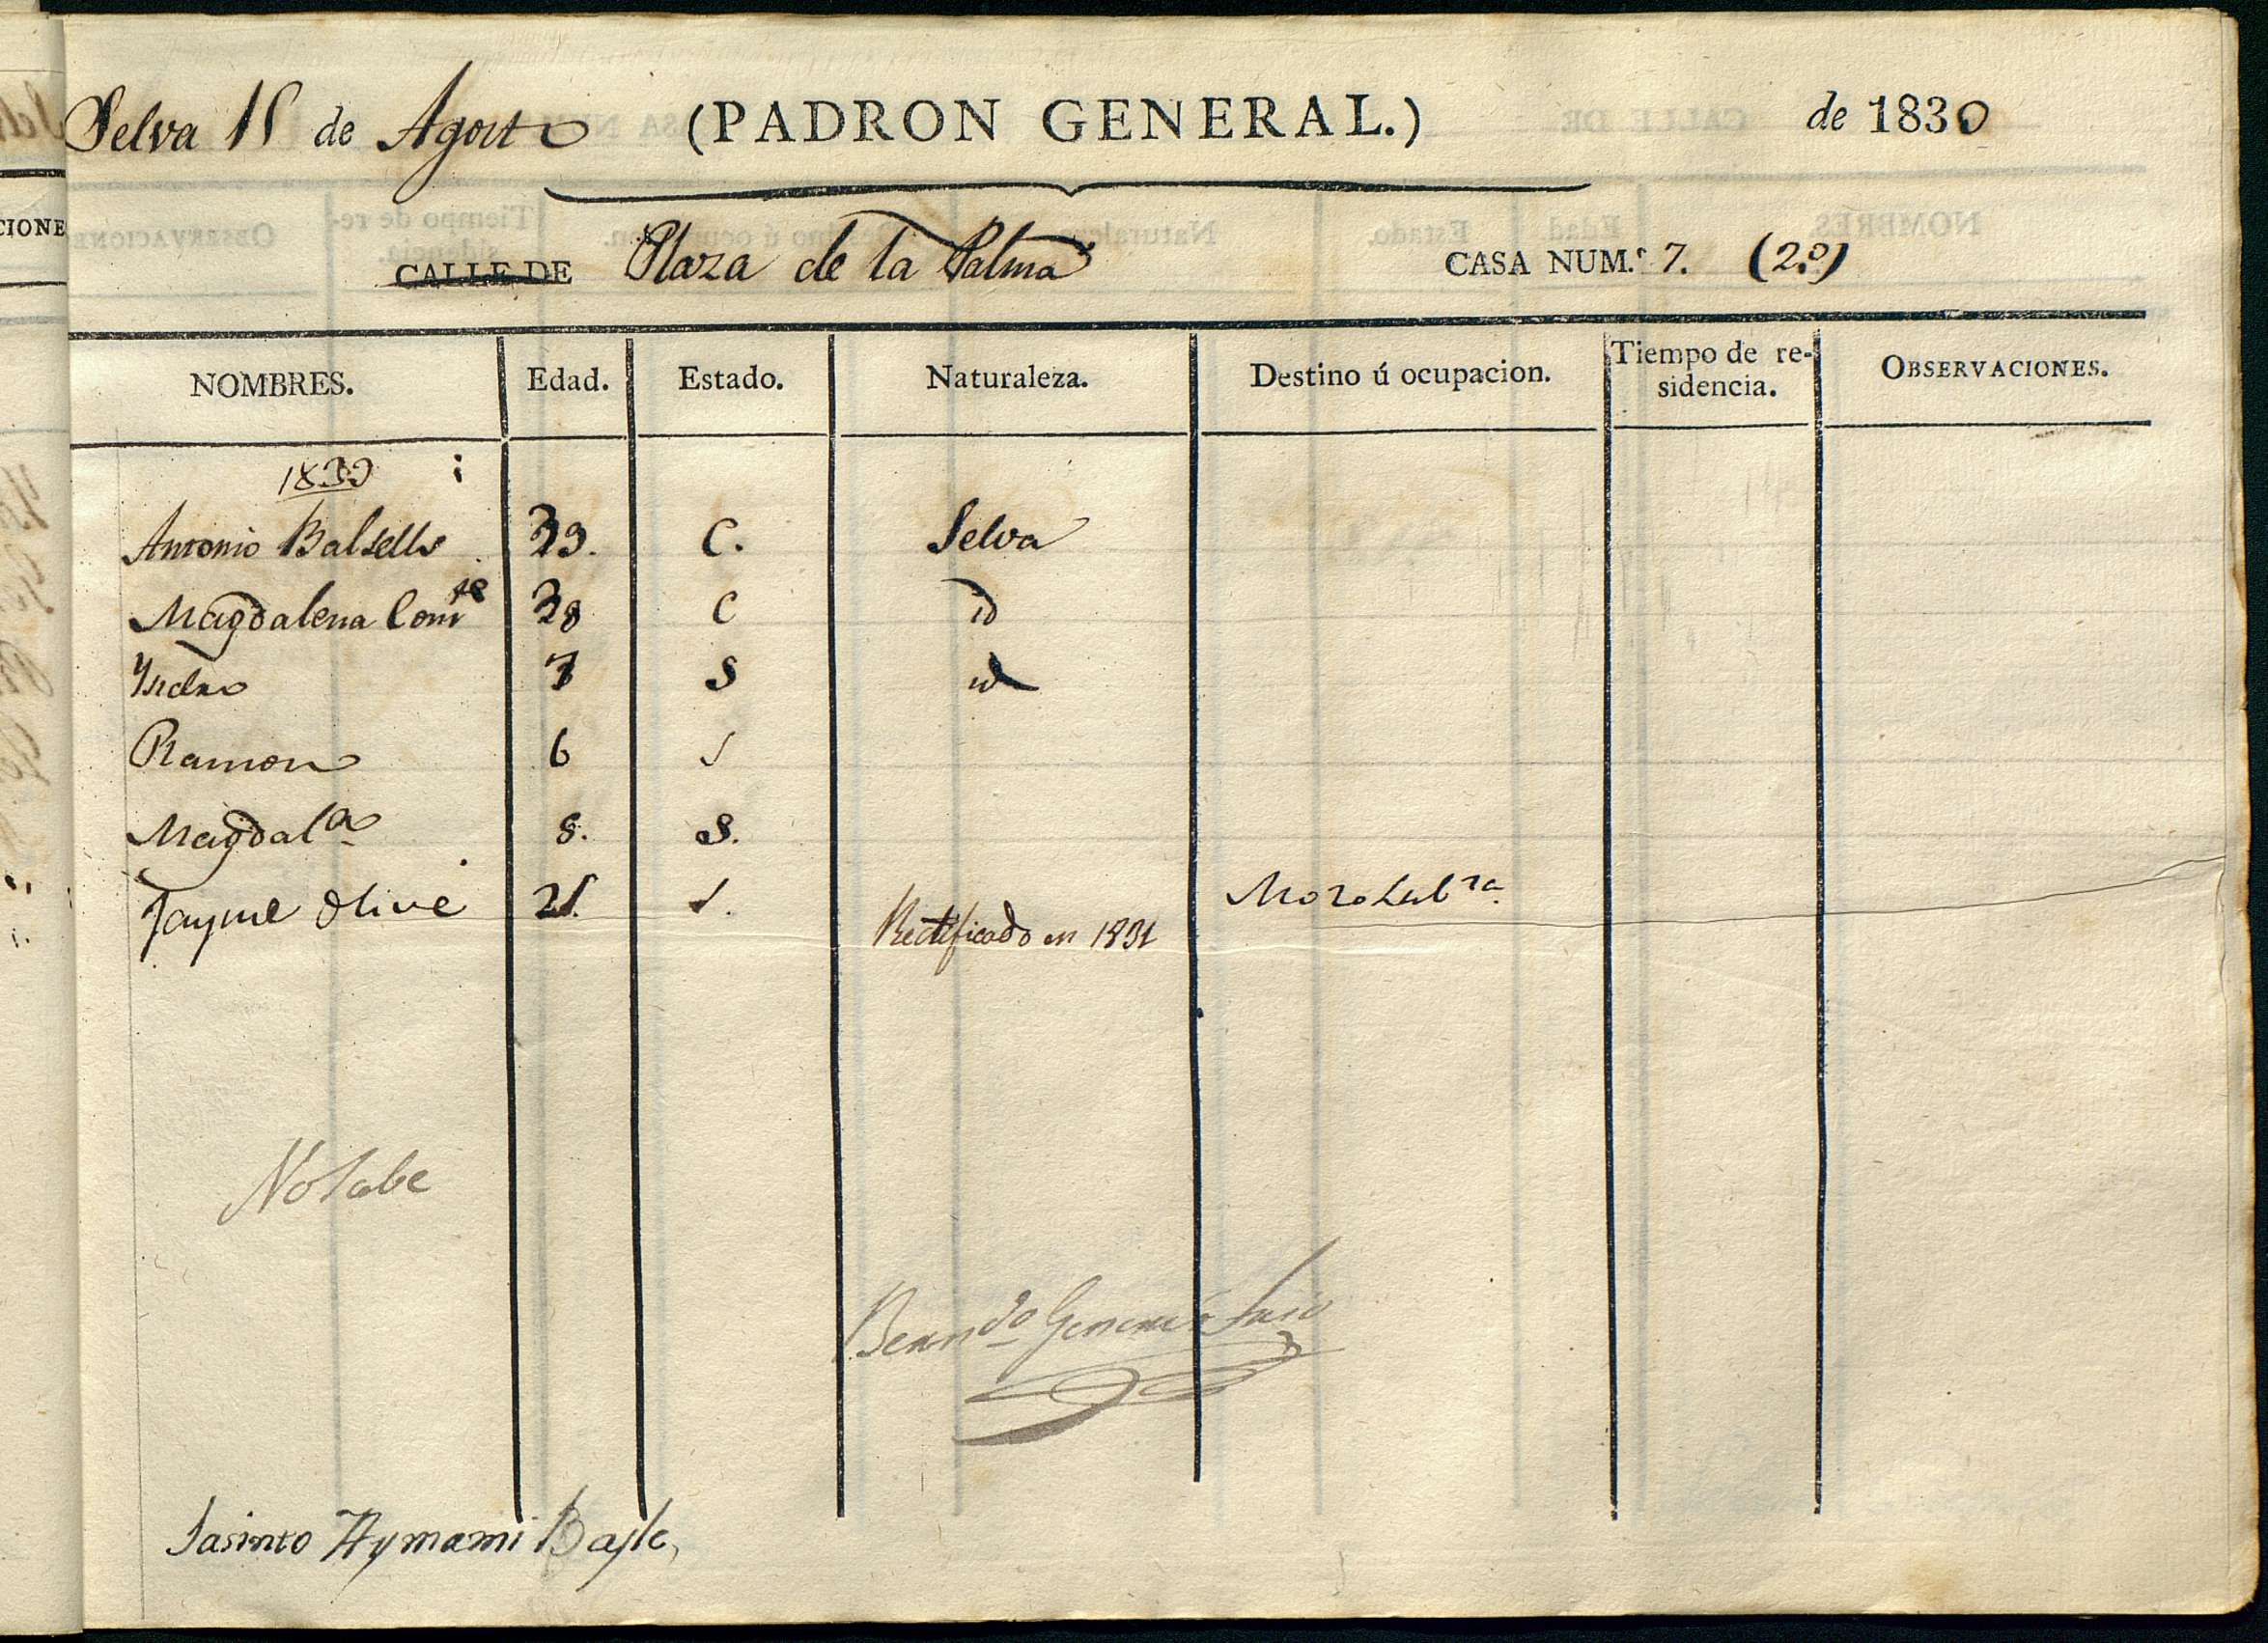 Selva 15 de Agosto (PADRON GENERAL.) de 1830
CALLE DE Plaza de la Palma CASA NUM.º 7. (2.º)
NOMBRES. Edad. Estado. Naturaleza. Destino ú ocupacion. Tiempo de re-
sidencia. OBSERVACIONES.
1830
Antonio Balsells 39. C. Selva
Magdalena 38 C id
Ysidro 7 S id
Ramon 6 S
Magdalª 8. S.
Jayme Olivé 21. S. Mozo Labra.
Rectificado en 1831
No Sabe
Jasinto Aymami Bayle,